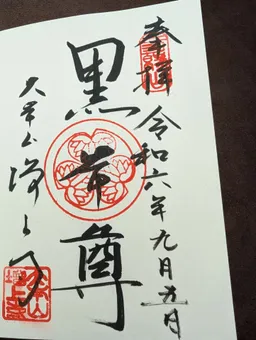 奉拝
令和六年九月五日
黒本尊
大本山増上寺